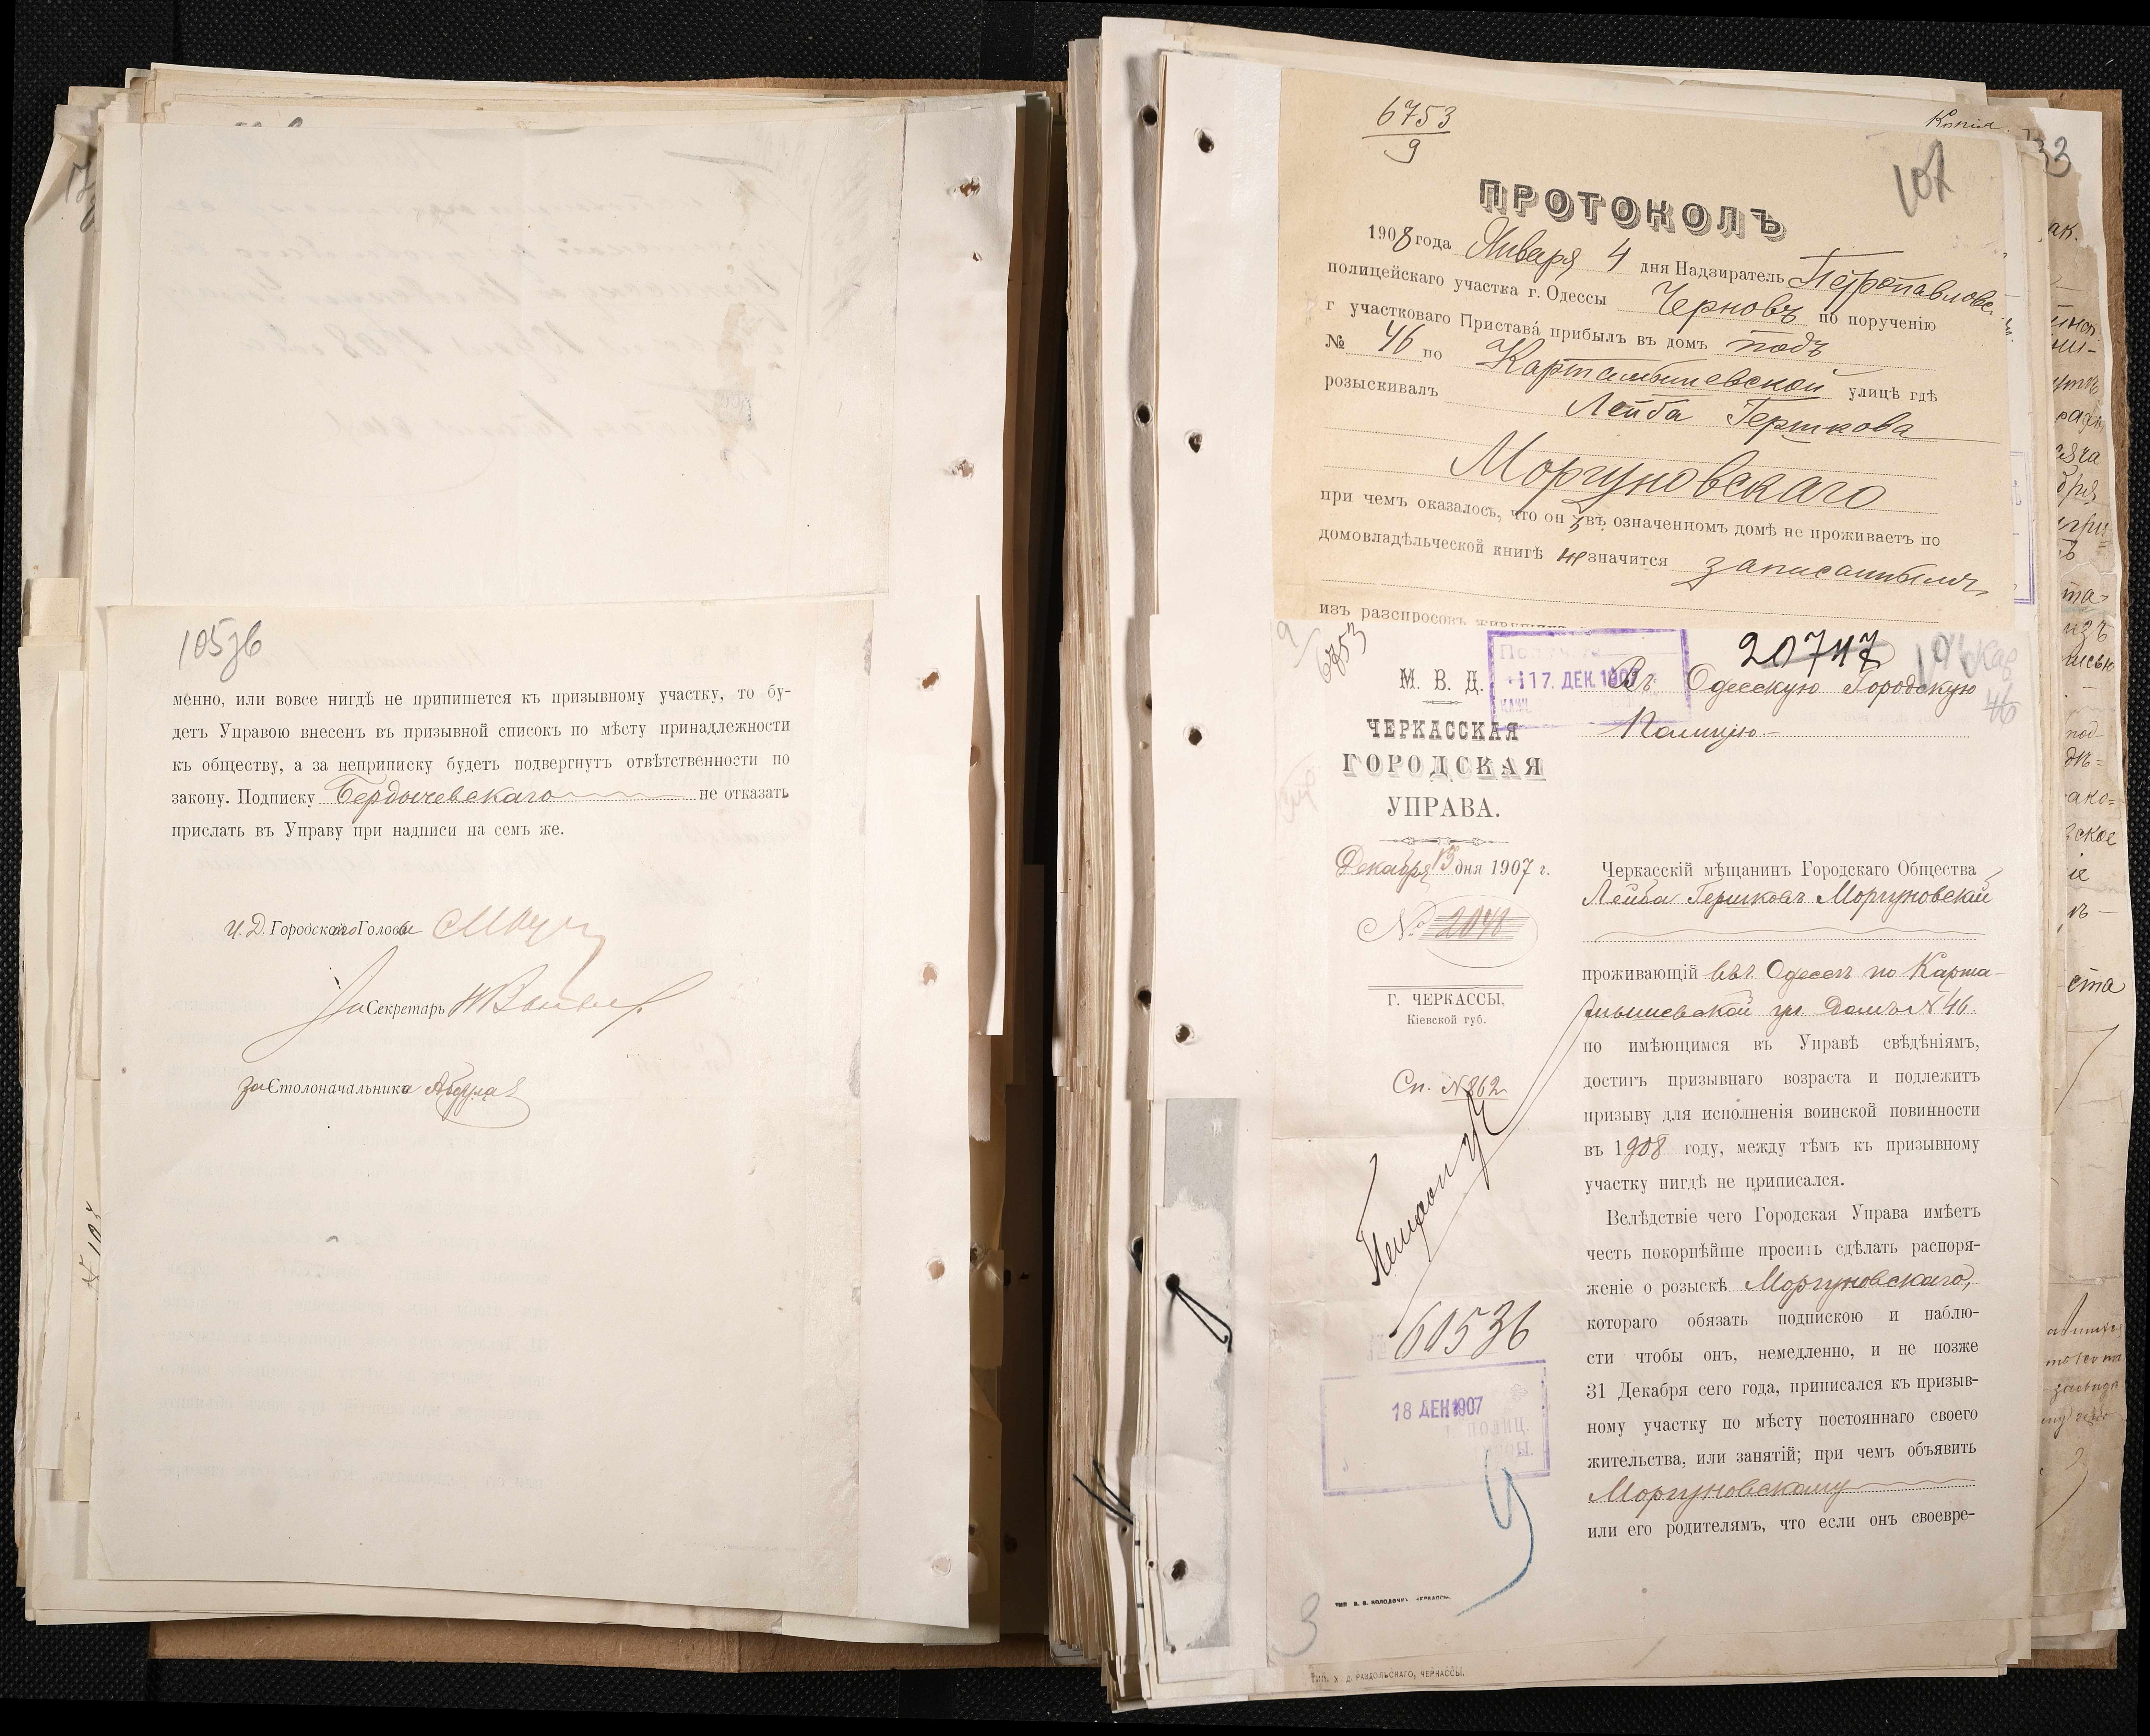 10536
менно, или вовсе нигдѣ не припишется къ призывному участку, то бу-
детъ Управою внесенъ въ призывной списокъ по мѣсту принадлежности
къ обществу, а за неприписку будетъ подвергнутъ отвѣтственности по
закону. Подписку Бердычевскаго не отказать
прислать въ Управу при надписи на семъ же.
И. Д. Городского Головы
За Секретарь
за Столоначальника
6753
9
Копія.
107
ПРОТОКОЛЪ
1908 года Января 4 дня Надзиратель Петропавловс
полицейскаго участка г. Одессы Черновъ по порученію
г участковаго Пристава прибылъ въ домъ подъ
№ 46 по Картамышевской улицѣ гдѣ
розыскивалъ Лейба Гершкова
Моргуновскаго
при чемъ оказалось, что онъ въ означенномъ домѣ не проживаетъ по
домовладѣльческой книгѣ не значится записаннымъ
изъ разспросовъ
9
6753
М. В. Д.
ЧЕРКАССКАЯ
ГОРОДСКАЯ
УПРАВА.
Декабря 13 дня 1907 г.
№ 2048
Г. ЧЕРКАССЫ,
Кіевской губ.
Сп. № 862
60536
18 ДЕК 1907
17. ДЕК. 1907
20747
46
Въ Одесскую Городскую
Полицію.
Черкасскій мѣщанинъ Городскаго Общества
Лейба Гершковъ Моргуновскій
проживающій въ г. Одессѣ по Карта-
мышевской ул домъ № 46.
по имѣющимся въ Управѣ свѣдѣніямъ,
достигъ призывнаго возраста и подлежитъ
призыву для исполненія воинской повинности
въ 1908 году, между тѣмъ къ призывному
участку нигдѣ не приписался.
Вслѣдствіе чего Городская Управа имѣетъ
честь покорнѣйше просить сдѣлать распоря-
женіе о розыскѣ Моргуновскаго,
котораго обязать подпискою и наблю-
сти чтобы онъ, немедленно, и не позже
31 Декабря сего года, приписался къ призыв-
ному участку по мѣсту постояннаго своего
жительства, или занятій; при чемъ объявить
Моргуновскому
или его родителямъ, что если онъ своевре-
3
Тип. Х. Д. РАЗДОЛЬСКАГО, ЧЕРКАССЫ.